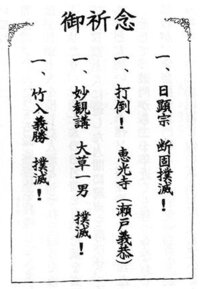 御祈念
一、日顕宗　断固撲滅！
一、打倒！　恵光寺（瀬戸義恭）
一、妙観講　大草一男　撲滅！
一、竹入義勝　撲滅！